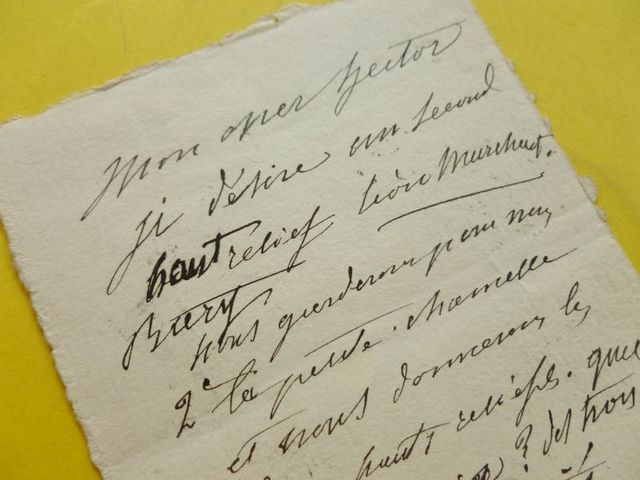 Mon cher Hector
je désire un second
haut relief Léon Marchut.
Bury
nous garderons pour nous
2e la petite chamelle
et nous donnerons les
hauts reliefs. que
? des trois